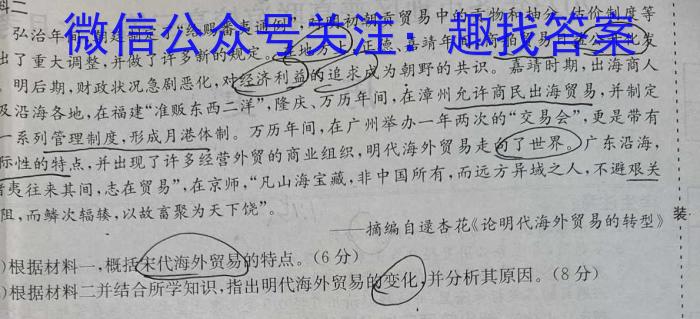 料二
弘治年间
给赐番夷通例
明初朝贡贸易中的贡物和抽分、估价制度等
微信公众号关注：趣找答案
出了重大调整，并做了许多新的规定。在地方上，正德、嘉靖年
发
。明后期，财政状况急剧恶化，对经济利益的追求成为朝野的共识。嘉靖时期，出海商人
及沿海各地，在福建“准贩东西二洋”，隆庆、万历年间，在漳州允许商民出海贸易，并制定
一系列管理制度，形成月港体制。万历年间，在广州举办一年两次的“交易会”，更是带有
际性的特点，并出现了许多经营外贸的商业组织，明代海外贸易走向了世界。广东沿海，
夷往来其间，志在贸易”，在京师，“凡山海宝藏，非中国所有，而远方异域之人，不避艰关
阻，而鳞次辐辏，以故畜聚为天下饶”。
——摘编自逯杏花《论明代海外贸易的转型》
装
)根据材料一，概括宋代海外贸易的特点。（6分）
)根据材料二并结合所学知识，指出明代海外贸易的变化，并分析其原因。（8分）